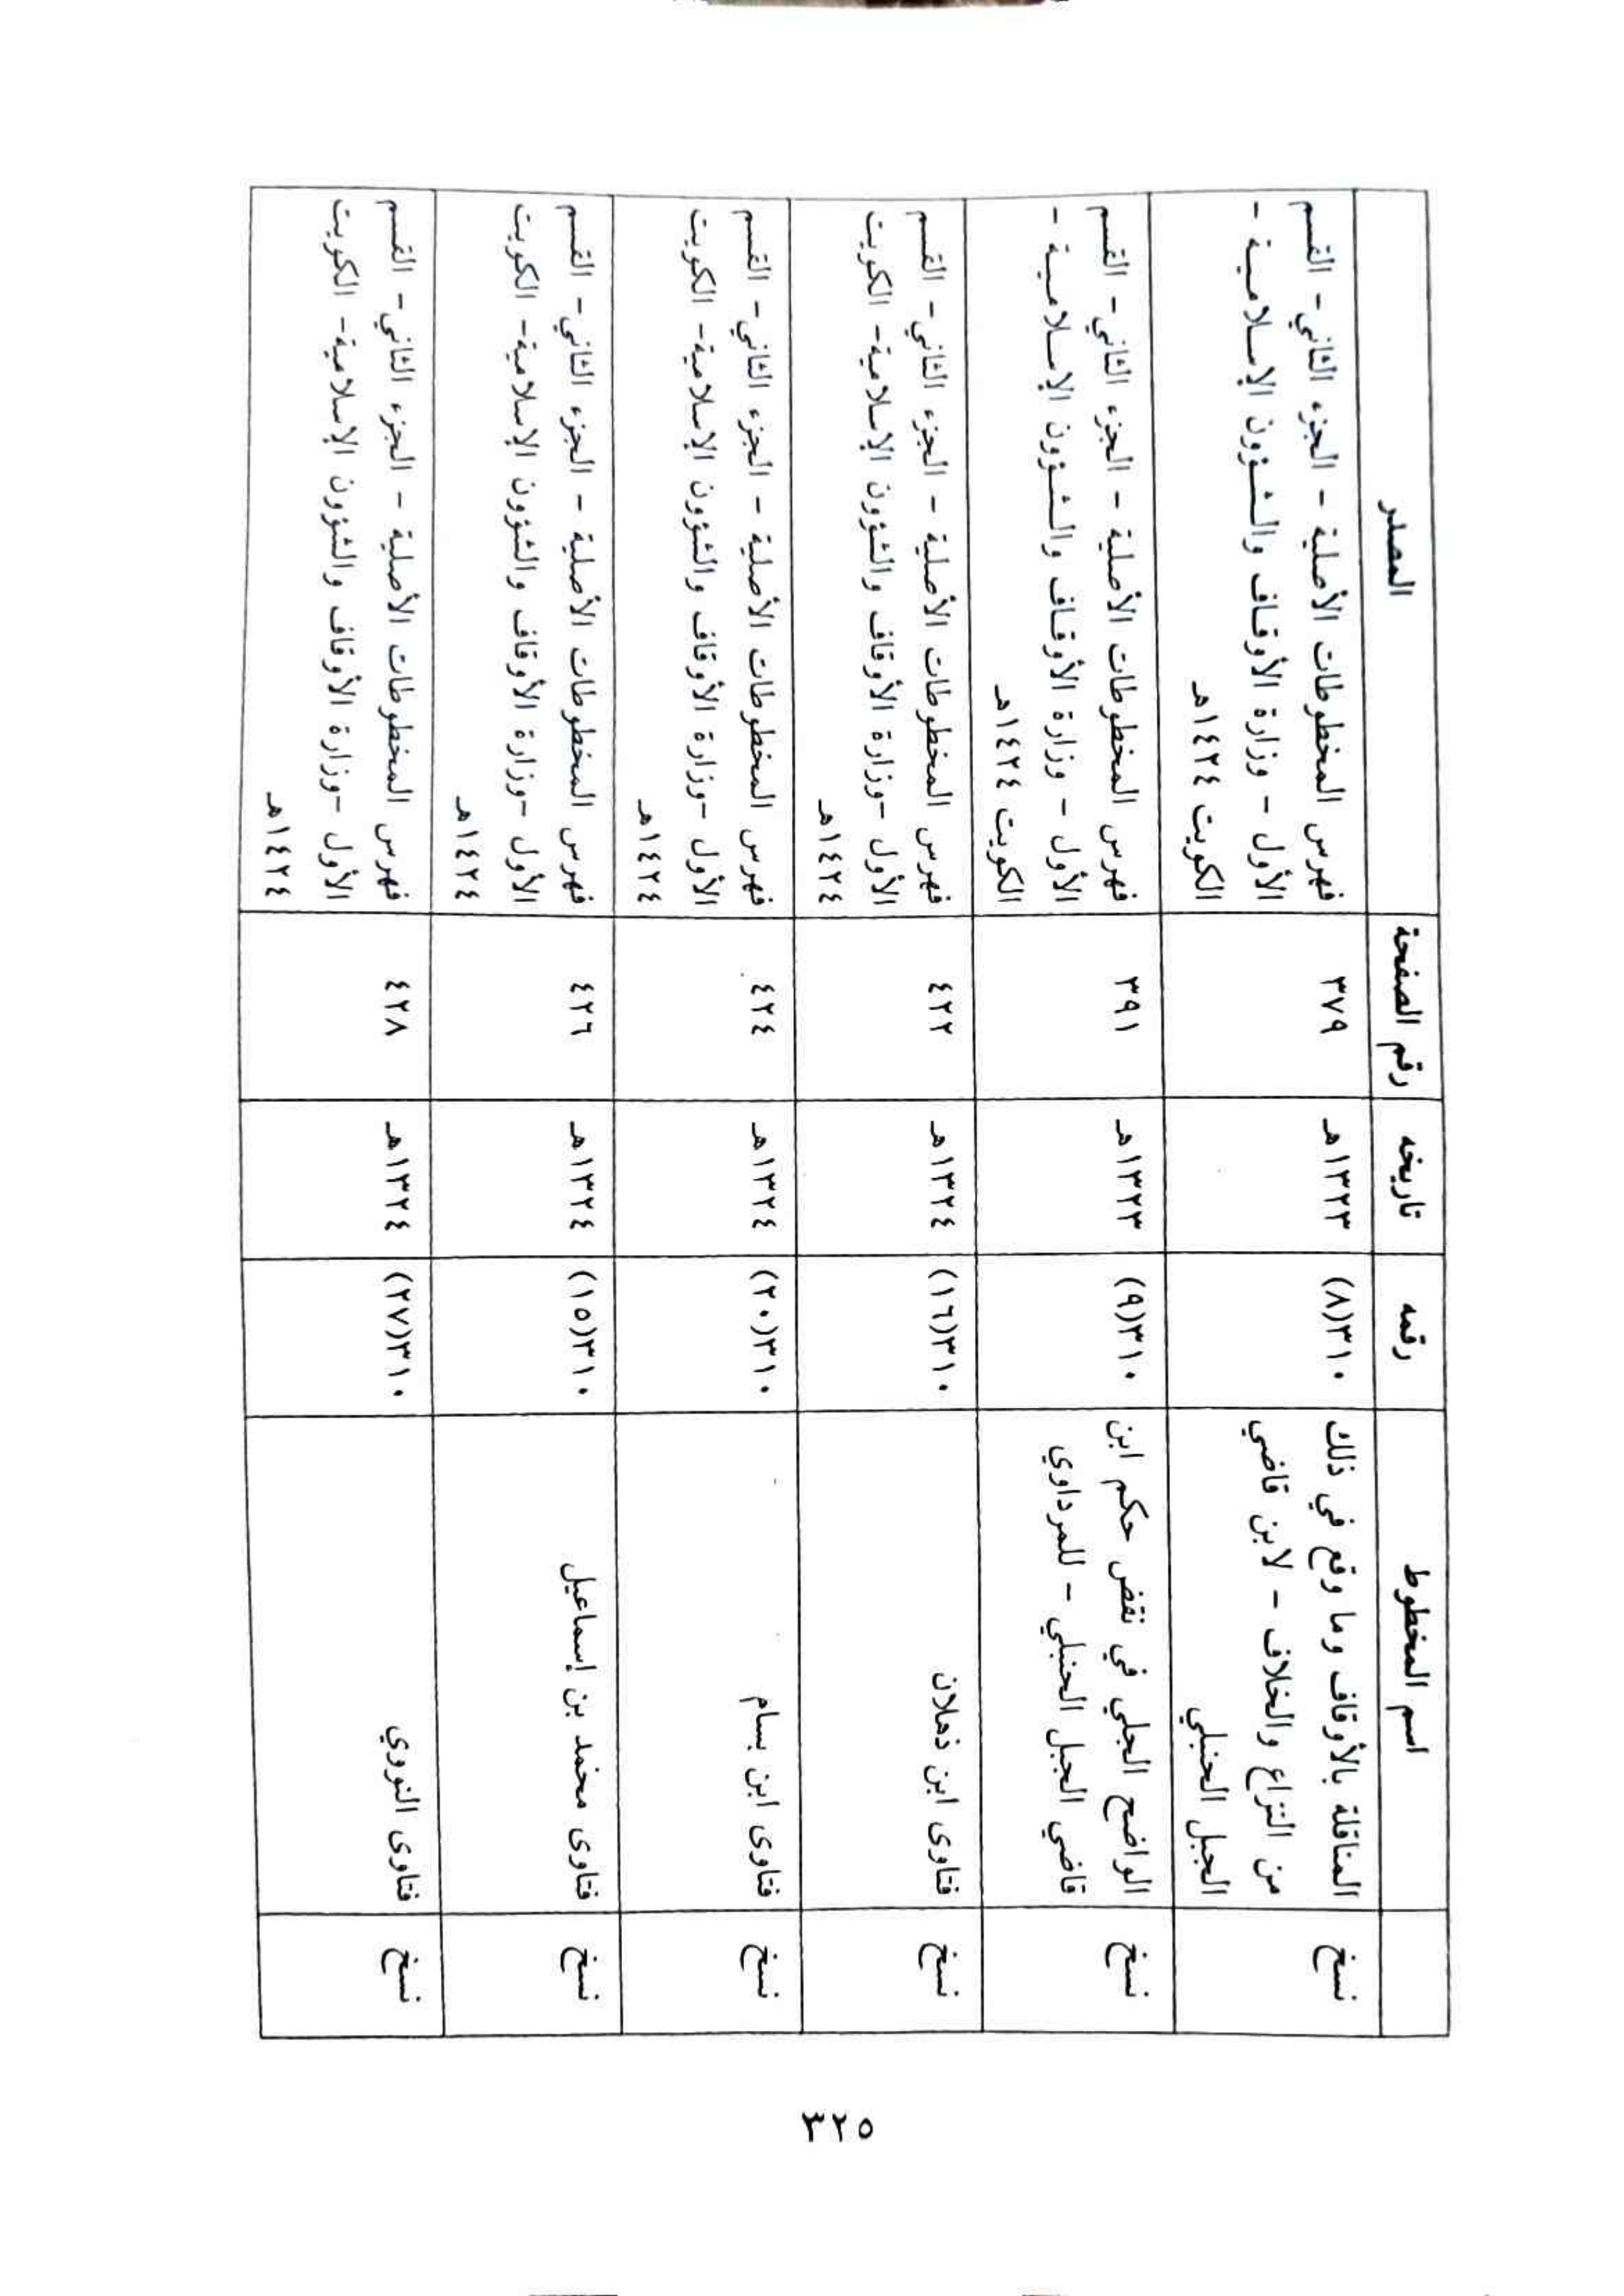 اسم المخطوط رقمه تاريخه رقم الصفحة المصدر
نسخ
المناقلة بالأوقاف وما وقع في ذلك
من النزاع والخلاف - لابن قاضي
الجبل الحنبلي
٣١٠(٨)
١٣٢٣هـ
٣٧٩
فهرس المخطوطات الأصلية - الجزء الثاني - القسم
الأول - وزارة الأوقاف والشؤون الإسلامية -
الكويت ١٤٢٤هـ
نسخ
الواضح الجلي في نقض حكم ابن
قاضي الجبل الحنبلي - للمرداوي
٣١٠(٩)
١٣٢٣هـ
٣٩١
فهرس المخطوطات الأصلية - الجزء الثاني - القسم
الأول - وزارة الأوقاف والشؤون الإسلامية -
الكويت ١٤٢٤هـ
نسخ
فتاوى ابن ذهلان
٣١٠(١٦)
١٣٢٤هـ
٤٢٢
فهرس المخطوطات الأصلية - الجزء الثاني - القسم
الأول -وزارة الأوقاف والشؤون الإسلامية- الكويت
١٤٢٤هـ
نسخ
فتاوى ابن بسام
٣١٠(٢٠)
١٣٢٤هـ
٤٢٤
فهرس المخطوطات الأصلية - الجزء الثاني - القسم
الأول -وزارة الأوقاف والشؤون الإسلامية- الكويت
١٤٢٤هـ
نسخ
فتاوى محمد بن إسماعيل
٣١٠(١٥)
١٣٢٤هـ
٤٢٦
فهرس المخطوطات الأصلية - الجزء الثاني - القسم
الأول -وزارة الأوقاف والشؤون الإسلامية- الكويت
١٤٢٤هـ
نسخ
فتاوى النووي
٣١٠(٢٧)
١٣٢٤هـ
٤٢٨
فهرس المخطوطات الأصلية - الجزء الثاني - القسم
الأول -وزارة الأوقاف والشؤون الإسلامية- الكويت
١٤٢٤هـ
٣٢٥